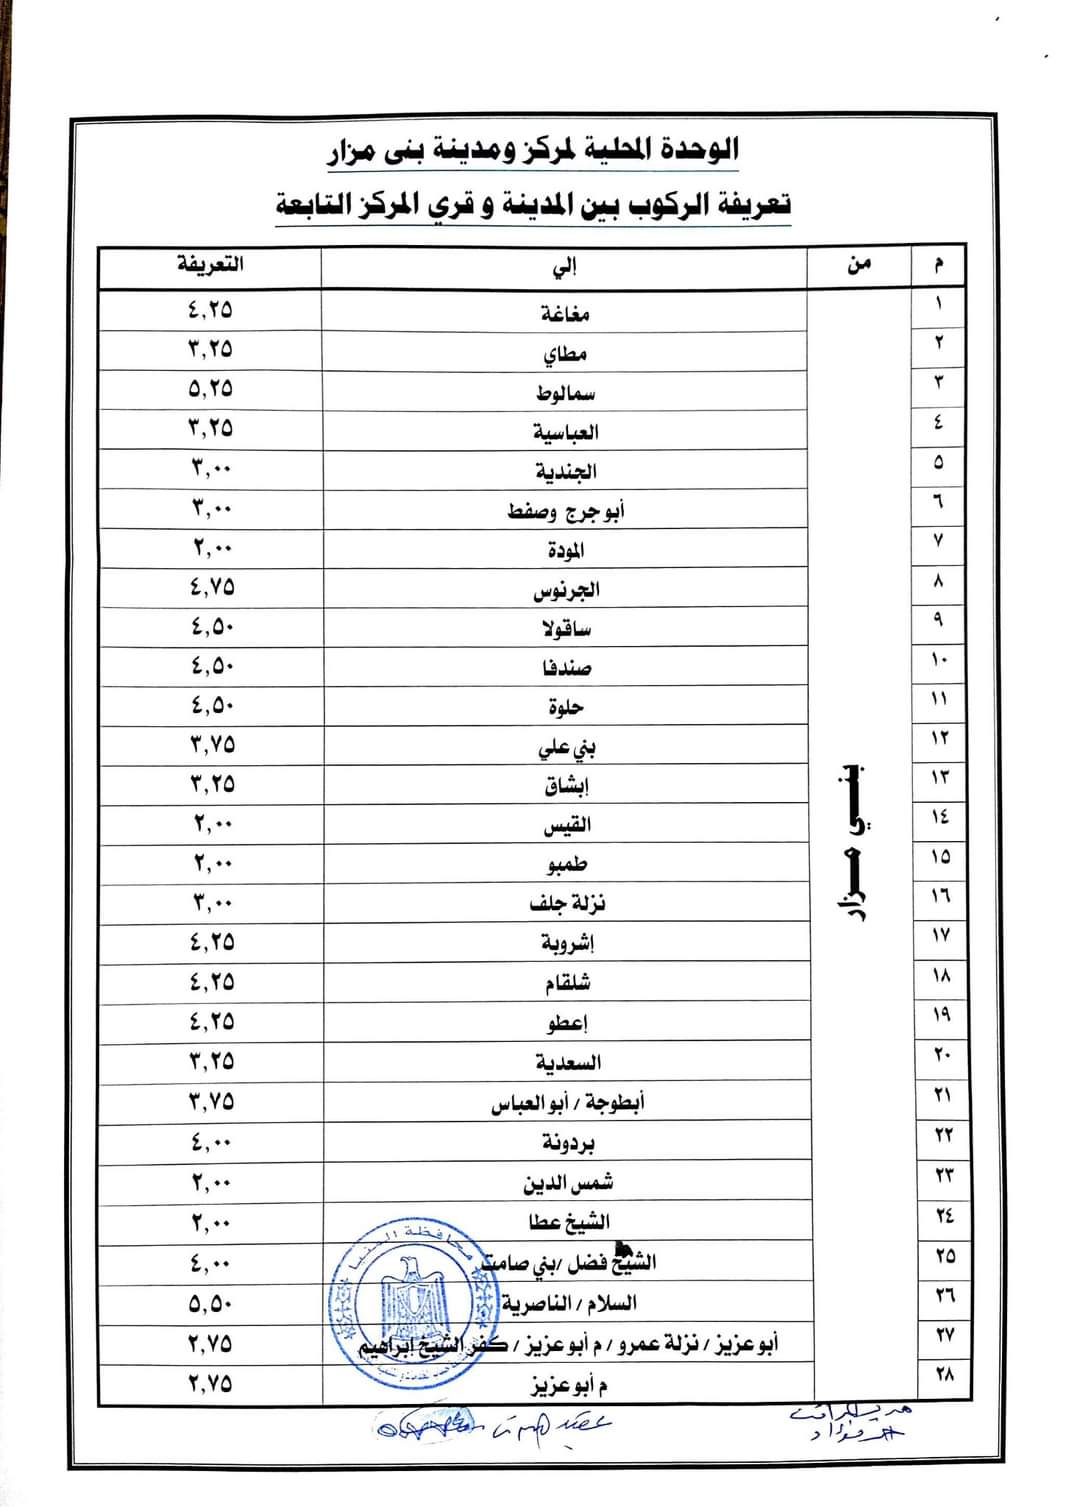 الوحدة المحلية لمركز ومدينة بنى مزار
تعريفة الركوب بين المدينة و قري المركز التابعة
م من إلي التعريفة
١ مغاغة ٤,٢٥
٢ مطاي ٣,٢٥
٣ سمالوط ٥,٢٥
٤ العباسية ٣,٢٥
٥ الجندية ٣,٠٠
٦ أبو جرج وصفط ٣,٠٠
٧ المودة ٢,٠٠
٨ الجرنوس ٤,٧٥
٩ ساقولا ٤,٥٠
١٠ صندفا ٤,٥٠
١١ حلوة ٤,٥٠
١٢ بني علي ٣,٧٥
١٣ إبشاق ٣,٢٥
بنــي مــزار
١٤ القيس ٢,٠٠
١٥ طمبو ٢,٠٠
١٦ نزلة جلف ٣,٠٠
١٧ إشروبة ٤,٢٥
١٨ شلقام ٤,٢٥
١٩ إعطو ٤,٢٥
٢٠ السعدية ٣,٢٥
٢١ أبطوجة / أبو العباس ٣,٧٥
٢٢ بردونة ٤,٠٠
٢٣ شمس الدين ٢,٠٠
٢٤ الشيخ عطا ٢,٠٠
٢٥ الشيخ فضل /بني صامت ٤,٠٠
٢٦ السلام / الناصرية ٥,٥٠
٢٧ أبو عزيز / نزلة عمرو / م أبو عزيز / كفر الشيخ إبراهيم ٢,٧٥
٢٨ م أبو عزيز ٢,٧٥
محافظة المنيا